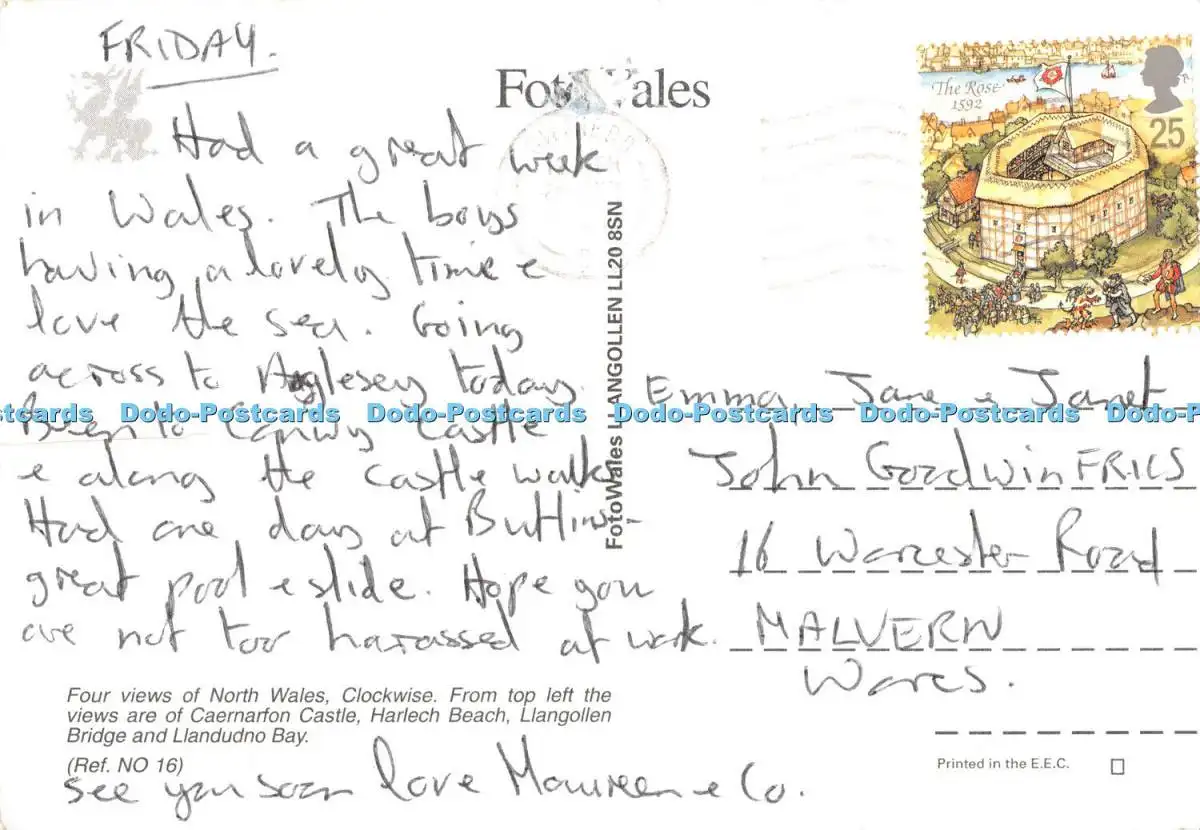 FRIDAY.
Had a great week
in Wales. The boys
having a lovely time e
love the sea. Going
across to Anglesey today.
Been to Conwy Castle
e along the castle walk
Had one day at Butlins -
great pool e slide. Hope you
are not too harassed at work.
Four views of North Wales, Clockwise. From top left the
views are of Caernarfon Castle, Harlech Beach, Llangollen
Bridge and Llandudno Bay.
(Ref. NO 16)
see you soon love Maureen e Co.
FotoWales
FotoWales LLANGOLLEN LL20 8SN
The Rose
1592
25
Emma, Jane e Janet
John Goodwin FRICS
16 Worcester Road
MALVERN
Worcs.
Printed in the E.E.C.
Dodo-Postcards Dodo-Postcards Dodo-Postcards Dodo-Postcards